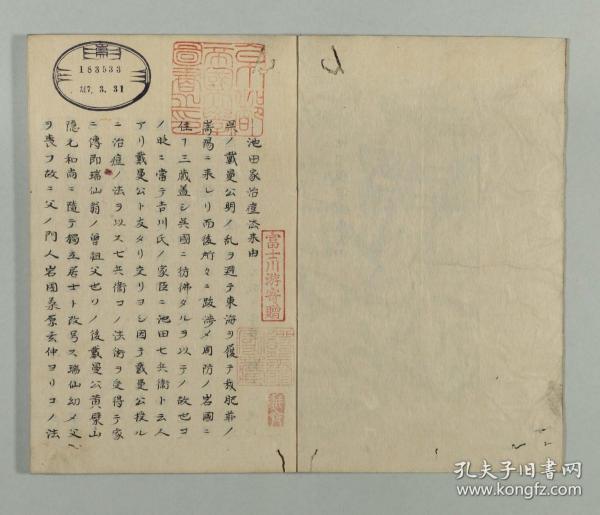 池田家治痘法来由
呉ノ戴曼公明ノ乱ヲ避テ東海ヲ履テ我肥前ノ
ニ来レリ而後所々ニ跋渉〆周防ノ岩國ニ
住ー三歳蓋シ呉國ニ彷彿タルヲ以テノ故也コ
ノ時ニ當テ吉川氏ノ家臣ニ池田七兵衛ト云人
アリ戴曼公ト友タリ交リヨシ因テ戴曼公授ル
ニ治痘ノ法ヲ以ス七兵衛コノ法術ヲ受得テ家
ニ傳フ即瑞仙翁ノ曾祖父也ソノ後戴曼公黄檗山
隠元和尚ニ隨テ獨立居士ト改号ス瑞仙幼〆父
ヲ喪フ故ニ父ノ門人岩國桑原玄仲ヨリコノ法
富士川游寄贈
183533
孔夫子旧书网
www.kongfz.com